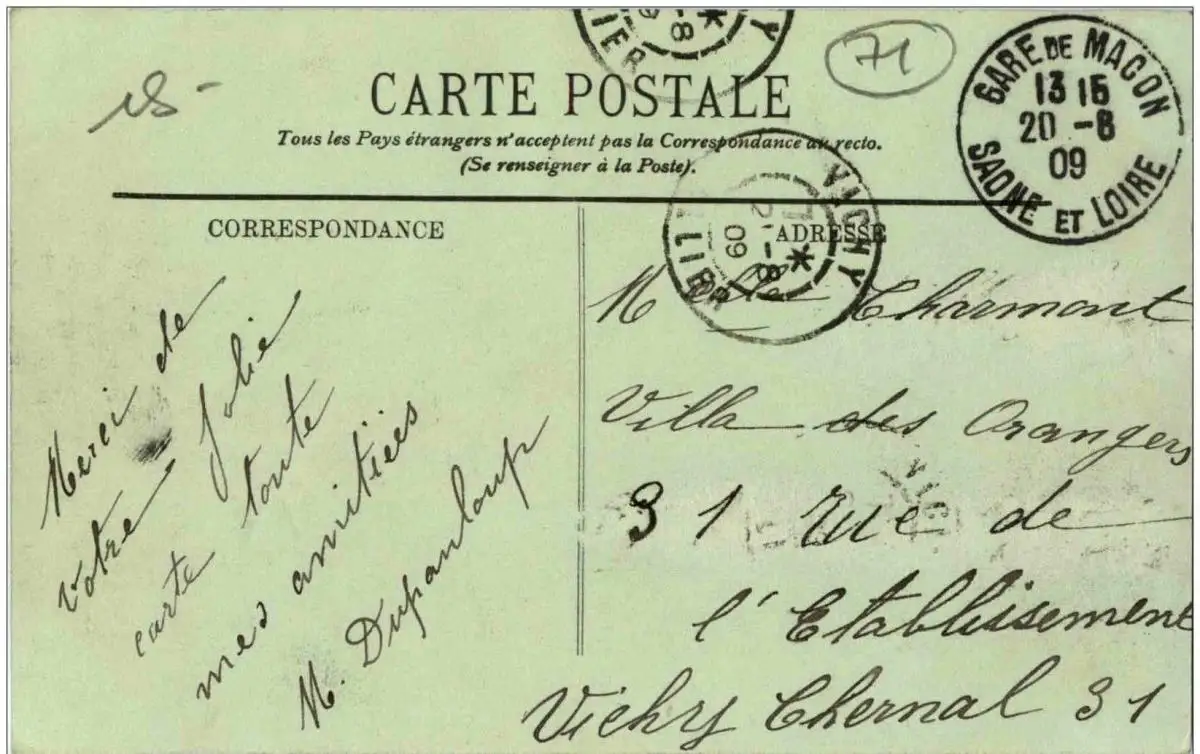 LIER 9 -8 * Y
71
18-
CARTE POSTALE
Tous les Pays étrangers n'acceptent pas la Correspondance au recto.
(Se renseigner à la Poste).
GARE DE MACON
13 15
20 -8
09
SAONE ET LOIRE
VICHY
-8
09
LLIER
*
CORRESPONDANCE
Merci de
votre jolie
carte toute
mes amitiées
M. Dupanloup
ADRESSE
Melle Charmont
Villa des Orangers
31 rue de
l'Etablisement
Vichy Chernal 31
VIC